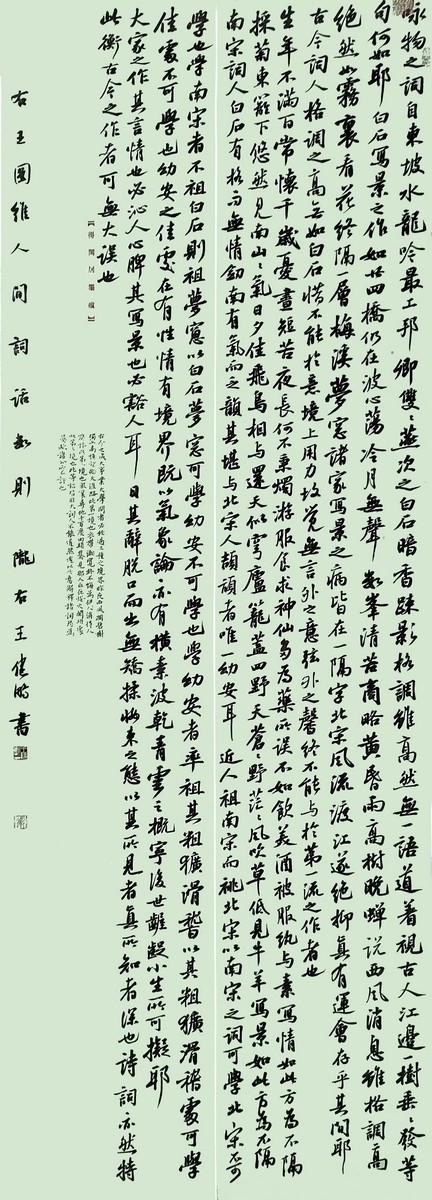 咏物之詞自東坡水龍吟最工邦卿雙〻燕次之白石暗香疎影格調雖高然無一語道着視古人江邊一樹垂〻發等
句何如耶 白石寫景之作如廿四橋仍在波心蕩冷月無聲 數峯清苦商略黃昏雨高樹晚蟬說西風消息雖格調高
絕然如霧裏看花終隔一層梅溪夢窗諸家寫景之病皆在一隔字北宋風流渡江遂絕抑真有運會存乎其間耶
古今詞人格調之高無如白石惜不能於意境上用力故覺無言外之意弦外之響終不能与於第一流之作者也
生年不滿百常懷千歲憂晝短苦夜長何不秉燭游服食求神仙多為藥所誤不如飲美酒被服紈与素寫情如此方為不隔
採菊東籬下悠然見南山〻氣日夕佳飛鳥相与還天似穹廬籠蓋四野天蒼〻野茫〻風吹草低見牛羊寫景如此方為不隔
南宋詞人白石有格而無情劍南有氣而乏韻其堪與北宋人頡頏者唯一幼安耳 近人祖南宋而祧北宋以南宋之詞可學北宋不可
學也學南宋者不祖白石則祖夢窗以白石夢窗可學幼安不可學也學幼安者率祖其粗獷滑稽以其粗獷滑稽處可學
佳處不可學也幼安之佳處在有性情有境界既以氣象論亦有橫素波乾青雲之概寧後世齷齪小生所可擬耶
大家之作其言情也必沁人心脾其寫景也必豁人耳目其辭脫口而出無矯揉妝束之態以其所見者真所知者深也詩詞亦然持
此衡古今之作者可無大誤也
古今之成大事業大學問者必經過三種之境界昨夜西風凋碧樹
獨上高樓望盡天涯路此第一境也衣帶漸寬終不悔為伊消得人
右王國維人間詞話數則 隴右王書